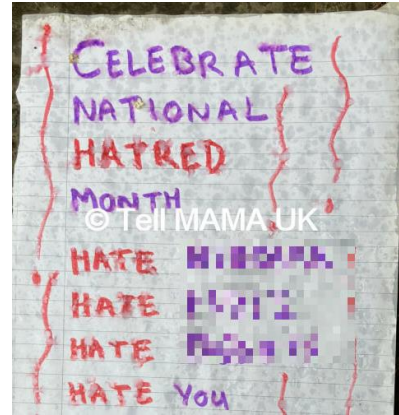 CELEBRATE
NATIONAL
HATRED
MONTH
© Tell MAMA UK
HATE
HATE
HATE
HATE YOU